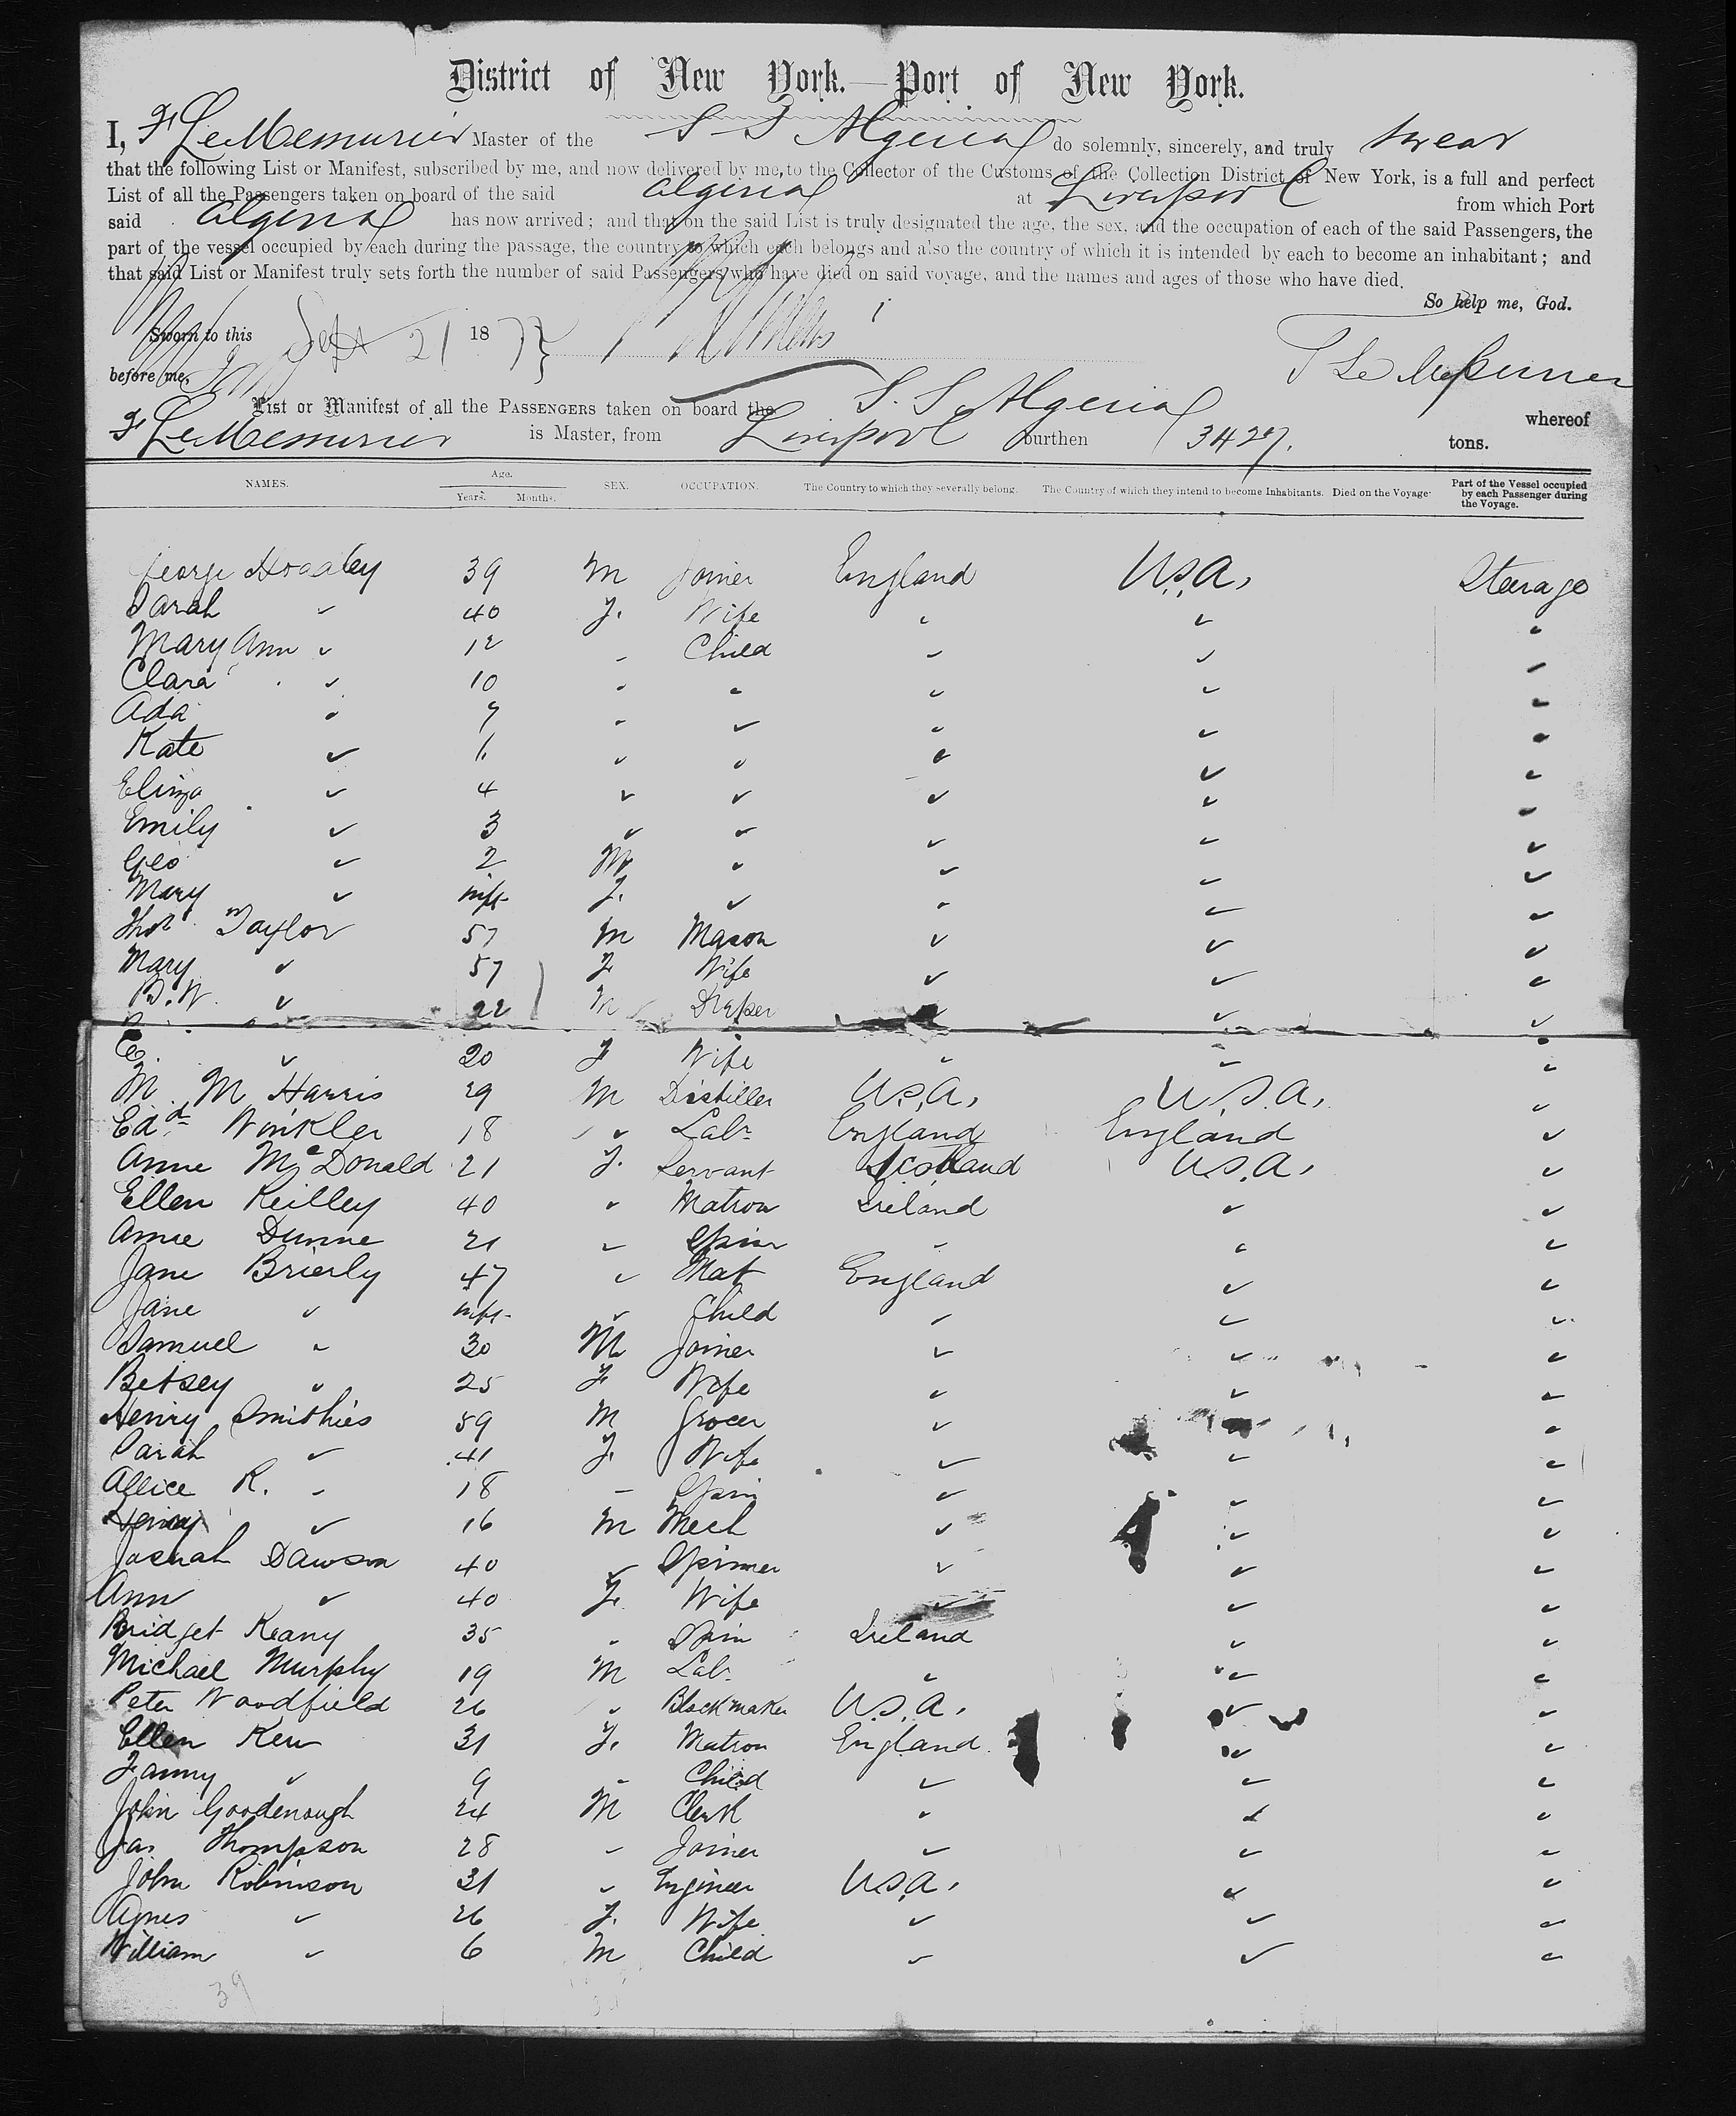 District of New York.—Port of New York.
I, F LeMessurier Master of the S S Algeria do solemnly, sincerely, and truly swear
that the following List or Manifest, subscribed by me, and now delivered by me, to the Collector of the Customs of the Collection District of New York, is a full and perfect
List of all the Passengers taken on board of the said Algeria at Liverpool from which Port
said Algeria has now arrived; and that on the said List is truly designated the age, the sex, and the occupation of each of the said Passengers, the
part of the vessel occupied by each during the passage, the country to which each belongs and also the country of which it is intended by each to become an inhabitant; and
that said List or Manifest truly sets forth the number of said Passengers who have died on said voyage, and the names and ages of those who have died.
So help me, God.
Sworn to this Sept 21 1877
before me,
List or Manifest of all the PASSENGERS taken on board the S. S. Algeria whereof
F LeMessurier is Master, from Liverpool burthen 3427. tons.
NAMES. Age. Years. Months. SEX. OCCUPATION. The Country to which they severally belong. The Country of which they intend to become Inhabitants. Died on the Voyage. Part of the Vessel occupied by each Passenger during the Voyage.
George 39 M Joiner England U.S.A. Steerage
Sarah " 40 F. Wife " " "
Mary Ann " 12 " Child " " "
Clara " 10 " " " " "
Ada " 7 " " " " "
Kate " 6 " " " " "
Eliza " 4 " " " " "
Emily " 3 " " " " "
Geo " 2 M " " " "
Mary " inft F. " " " "
Thos Taylor 57 M Mason " " "
Mary " 57 F Wife " " "
B. W. " 22 M Draper " " "
C. " 20 F Wife " " "
M. M Harris 29 M Distiller U.S.A. U.S.A. "
Edd Winkler 18 " Labr England England "
Anne McDonald 21 F. Servant Scotland U.S.A. "
Ellen Reilley 40 " Matron Ireland " "
Annie Dunne 21 " Spinr " " "
Jane Brierly 47 " Mat England " "
Jane " inft " Child " " "
Samuel " 30 M Joiner " " "
Betsey " 25 F Wife " " "
Henry Smithies 59 M Grocer " " "
Sarah " 41 F. Wife " " "
Allice R. " 18 " Spin " " "
Henry " 16 M Mech " " "
Josuah Dawson 40 " Spinner " " "
Ann " 40 F. Wife " " "
Bridget Keany 35 " Spin Ireland " "
Michael Murphy 19 M Labr " " "
Peter Woodfield 26 " Blockmaker U.S.A. " "
Ellen Kew 31 F. Matron England " "
Fanny " 9 " Child " " "
John Goodenough 24 M Clerk " " "
Jas Thompson 28 " Joiner " " "
John Robinson 31 " Engineer U.S.A. " "
Agnes " 26 F. Wife " " "
William " 6 M Child " " "
39